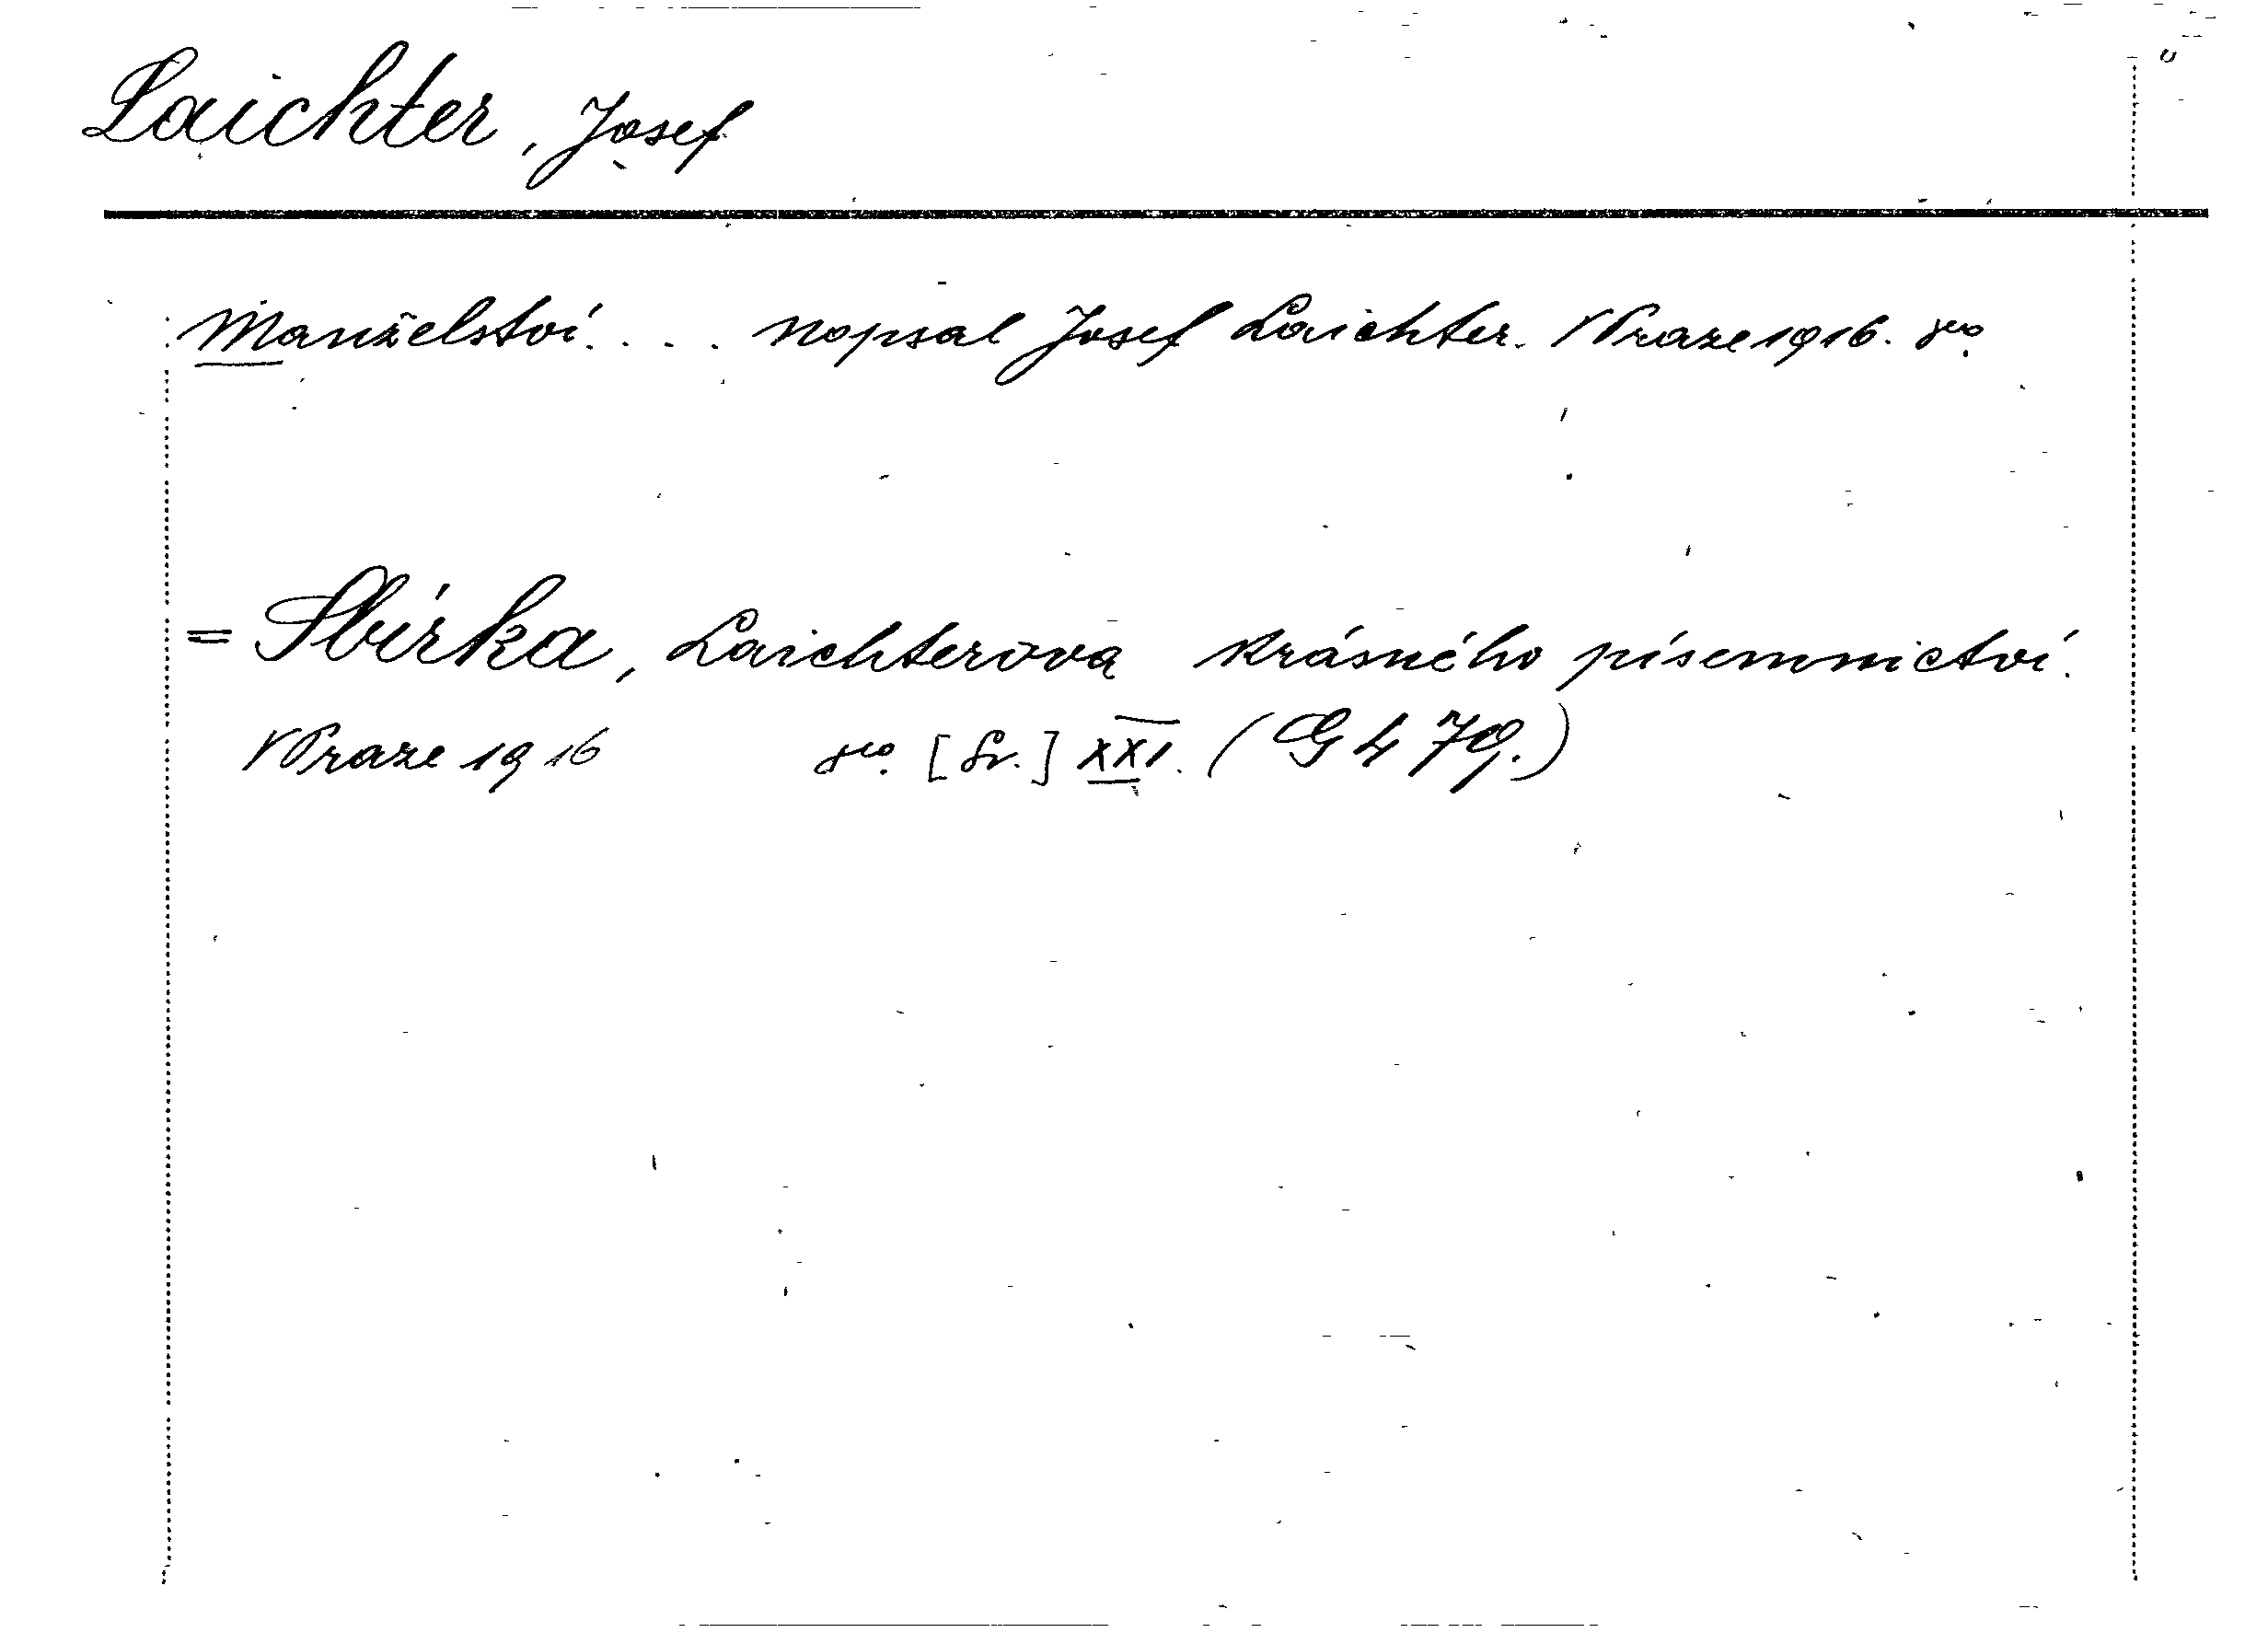 Laichter, Josef
Manželství.... napsal Josef Laichter. V Praze 1916. 8vo.
= Sbírka, Laichterova krásného písemnictví.
V Praze 1916 8vo. [Sv.] XXI. (G 479.)